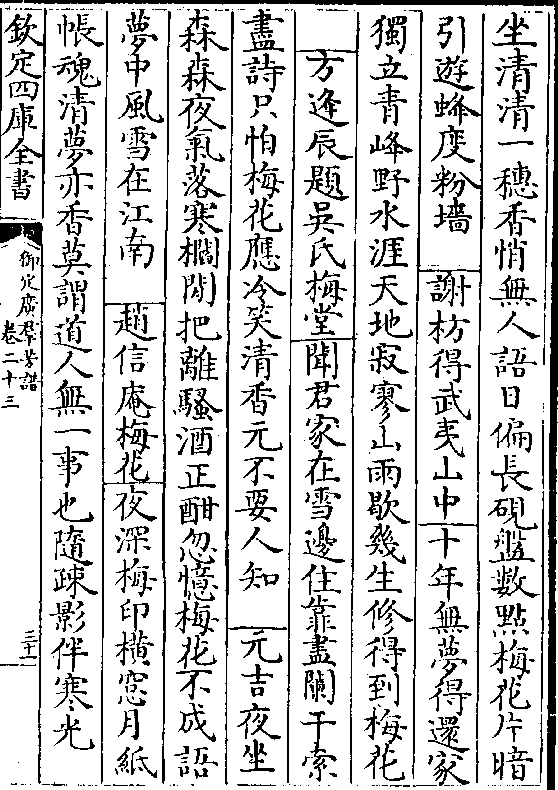 坐清清一穗香悄無人語日偏長硯盤數點梅花片暗
引遊蜂度粉墻　謝枋得武夷山中　十年無夢得還家
獨立青峰野水涯天地寂寥山雨歇幾生修得到梅花
方逢辰題吳氏梅堂　聞君家在雪邊住靠盡闌干索
盡詩只怕梅花應冷笑清香元不要人知　元吉夜坐
森森夜氣落寒櫩閒把離騷酒正酣忽憶梅花不成語
夢中風雪在江南　趙信庵梅花　夜深梅印橫窓月紙
帳魂清夢亦香莫謂道人無一事也隨疎影伴寒光
欽定四庫全書
御定廣羣芳譜
卷二十三
三十一